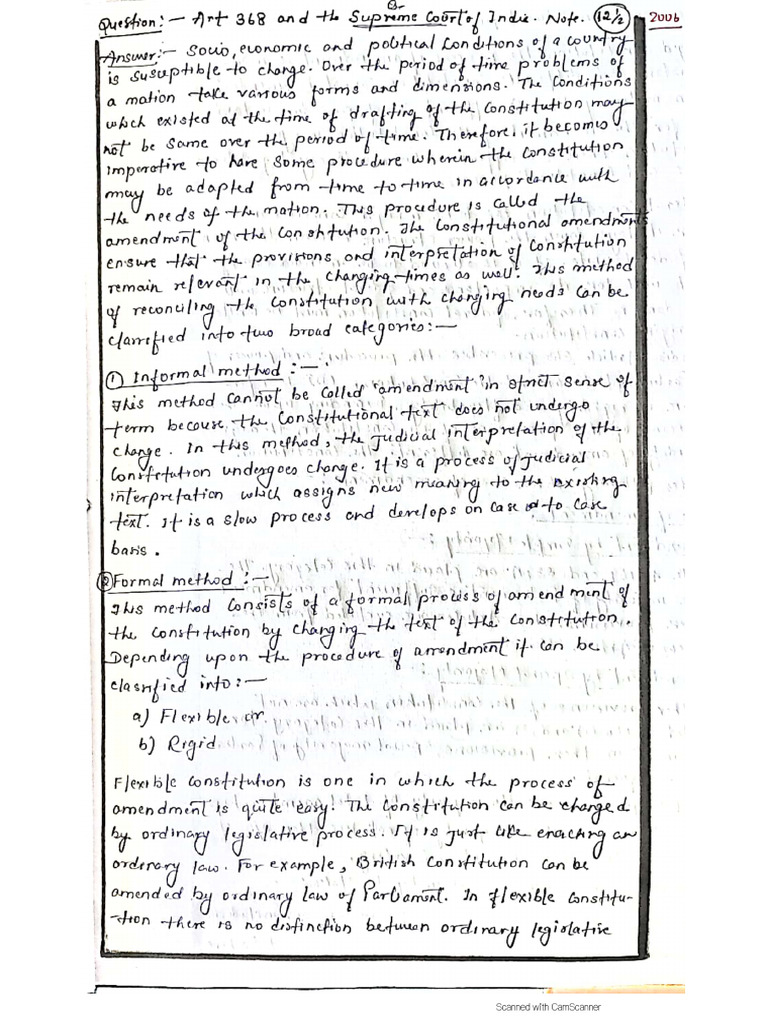 Question:- Art 368 and the Supreme Court of India. Note. (12½) 2006
Answer:- Socio, economic and political Conditions of a country
is susuptible to change. Over the period of time problems of
a mation take various forms and dimensions. The Conditions
which existed at the time of drafting of the Constitution may
not be same over the period of time. Therefore, it becomes
imperative to have some procedure wherein the Constitution
may be adapted from time to time in accordance with
the needs of the mation. This procedure is called the
amendment of the Constitution. The Constitutional amendments
ensure that the provisions and interpretation of constitution
remain relevant in the changing times as well. This method
of reconciling the Constitution with changing needs can be
classified into two broad categories:—
① Informal method :—
This method cannot be called 'amendment' in strict sense of
term becouse the Constitutional text does not undergo
change. In this method, the judicial interpretation of the
Constitution undergoes change. It is a process of judicial
interpretation which assigns new meaning to the existing
text. It is a slow process and develops on case to case
basis.
② Formal method :—
This method Consists of a formal process of amendment of
the Constitution by changing the text of the Constitution.
Depending upon the procedure of amendment it can be
classified into:—
a) Flexible or
b) Rigid
Flexible Constitution is one in which the process of
amendment is quite easy. The Constitution can be changed
by ordinary legislative process. It is just like enacting an
ordinary law. For example, British Constitution can be
amended by ordinary law of Parliament. In flexible Constitu-
-tion there is no distinction between ordinary legislative
Scanned with CamScanner